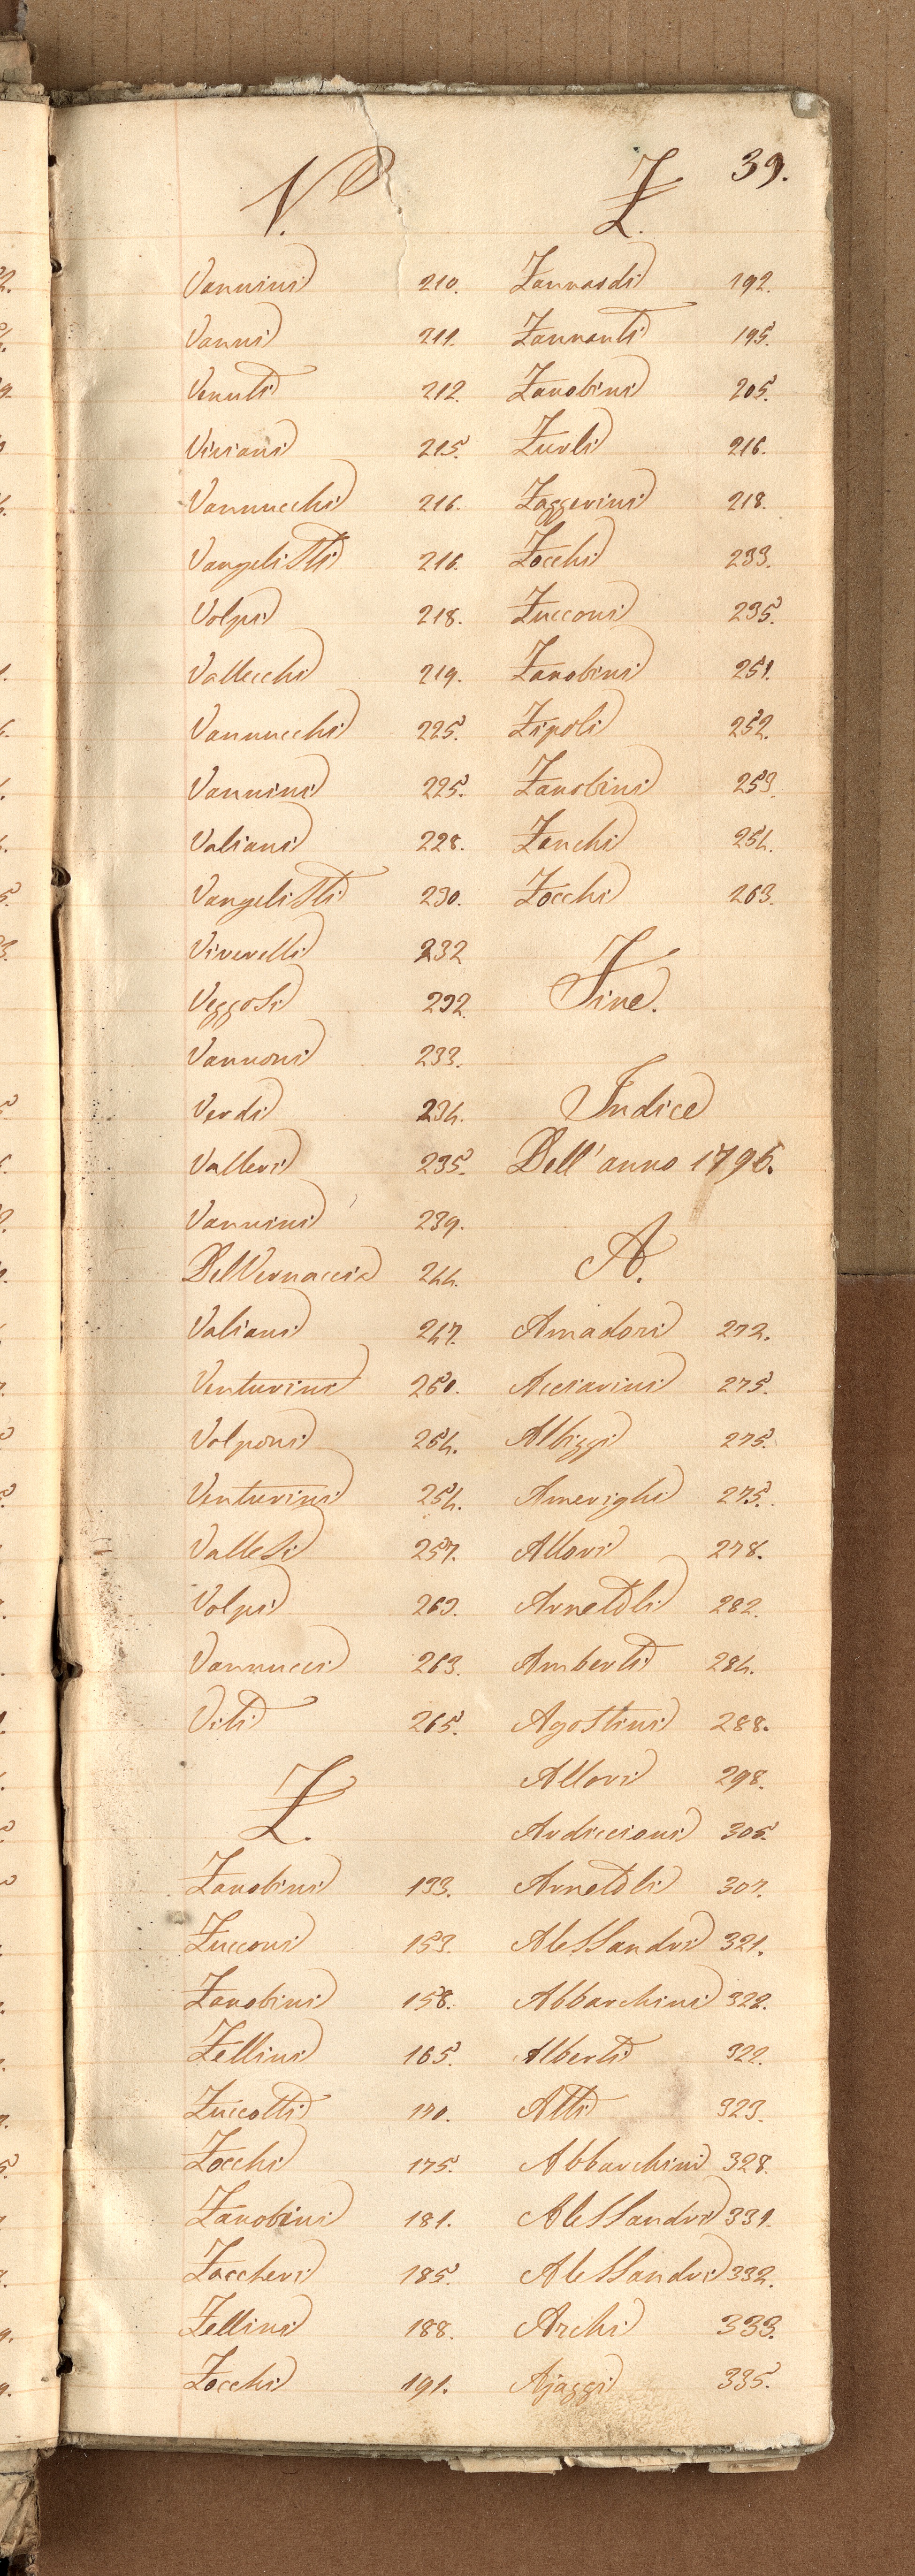 39.
V.
Vannini 210.
Vanni 211.
Venuti 212.
Viviani 215.
Vannucchi 216.
Vangelisti 216.
Volpi 218.
Vallecchi 219.
Vannucchi 225.
Vannini 225.
Valiani 228.
Vangelisti 230.
Viverelli 232
Veggosi 232.
Vannoni 233.
Verdi 234.
Valleri 235.
Vannini 239.
Del Vernaccia 244.
Valiani 247.
Venturini 250.
Volponi 254.
Venturini 254.
Vallesi 257.
Volpi 263.
Vannucci 263.
Viti 265.
Z.
Zanobini 133.
Zucconi 153.
Zanobini 158.
Zellini 165.
Zuccotti 170.
Zocchi 175.
Zanobini 181.
Zaccheri 185.
Zellini 188.
Zocchi 191.
Z.
Zannardi 192.
Zannanti 195.
Zanobini 205.
Zurli 216.
Zaggerini 218.
Zocchi 233.
Zucconi 235.
Zanobini 251.
Zipoli 252.
Zanobini 253.
Zanchi 254.
Zocchi 263.
Fine.
Indice
Dell'anno 1796.
A.
Amadori 272.
Acciarini 275.
Albizzi 275.
Amerighi 275.
Allori 278.
Arnetoli 282.
Amberti 284.
Agostini 288.
Allori 298.
Ardiccioni 305.
Arnetoli 307.
Alessandri 321.
Abbarchini 322.
Alberti 322.
Atti 323.
Abbarchini 328.
Alessandri 331.
Alessandri 332.
Archi 333.
Ajazzi 335.